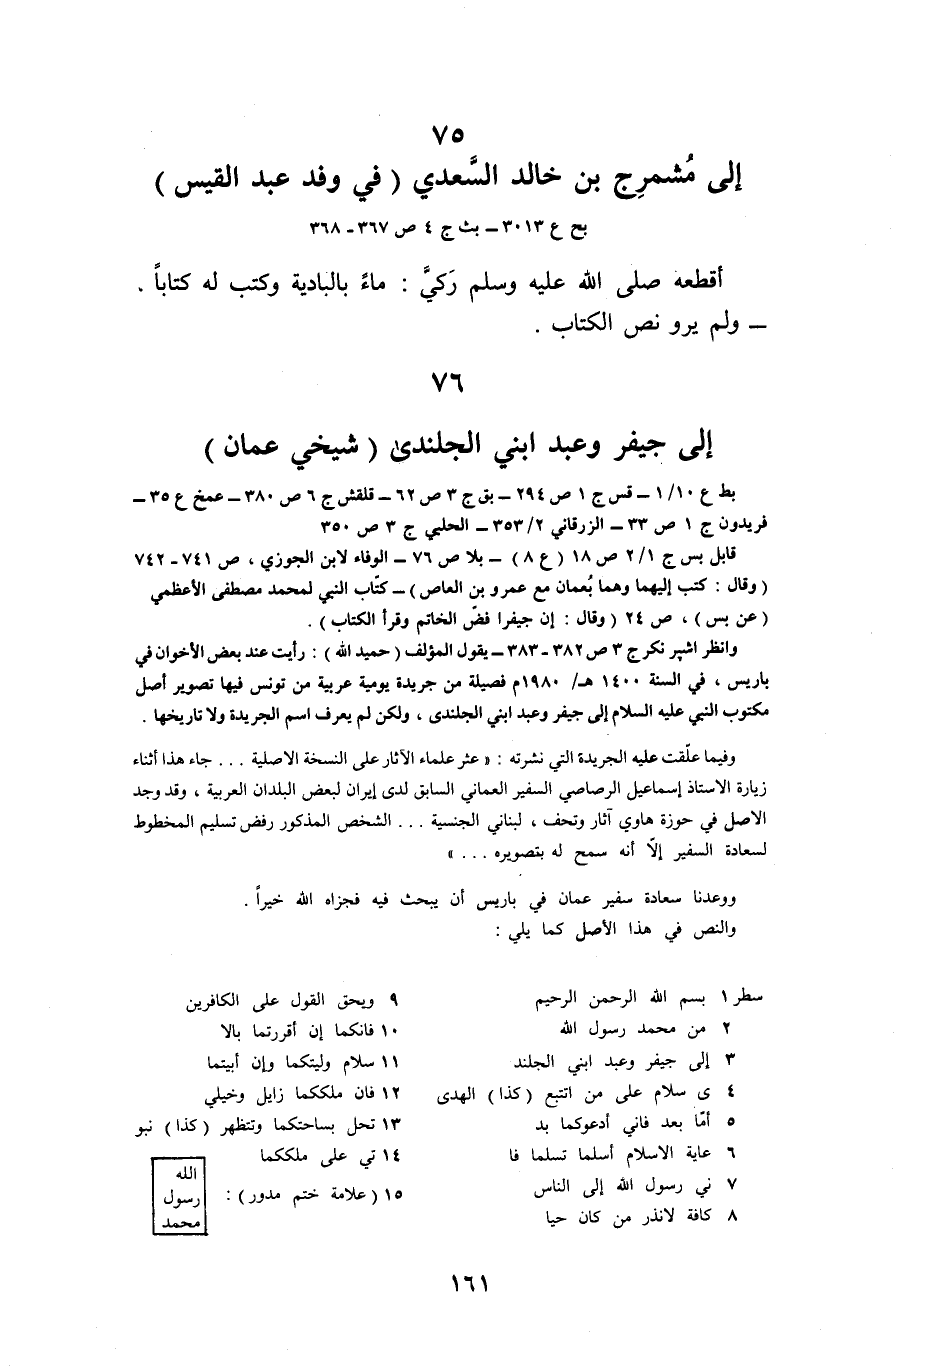 ٧٥
إلى مُشمرِج بن خالد السَّعدي ( في وفد عبد القيس )
بح ع ٣٠١٣ – بث ج ٤ ص ٣٦٧ - ٣٦٨
أقطعه صلى الله عليه وسلم رَكيَّ : ماءً بالبادية وكتب له كتاباً .
– ولم يرو نص الكتاب .
٧٦
إلى جيفر وعبد ابني الجلندى ( شيخي عمان )
بط ع ١/١٠ – قس ج ١ ص ٢٩٤ – بق ج ٣ ص ٦٢ – قلقش ج ٦ ص ٣٨٠ – عمخ ع ٣٥ –
فريدون ج ١ ص ٣٣ – الزرقاني ٣٥٣/٢ – الحلبي ج ٣ ص ٣٥٠
قابل بس ج ٢/١ ص ١٨ ( ع ٨ ) – بلا ص ٧٦ – الوفاء لابن الجوزي ، ص ٧٤١ - ٧٤٢
( وقال : كتب إليهما وهما بُعمان مع عمرو بن العاص ) – كتّاب النبي لمحمد مصطفى الأعظمي
( عن بس ) ، ص ٢٤ ( وقال : إن جيفرا فضّ الخاتم وقرأ الكتاب ) .
وانظر اشپر نكر ج ٣ ص ٣٨٢ - ٣٨٣ – يقول المؤلف ( حميد الله ) : رأيت عند بعض الأخوان في
باريس ، في السنة ١٤٠٠ هـ/ ١٩٨٠م فصيلة من جريدة يومية عربية من تونس فيها تصوير أصل
مكتوب النبي عليه السلام إلى جيفر وعبد ابني الجلندى ، ولكن لم يعرف اسم الجريدة ولا تاريخها .
وفيما علّقت عليه الجريدة التي نشرته : « عثر علماء الآثار على النسخة الاصلية ... جاء هذا أثناء
زيارة الاستاذ إسماعيل الرصاصي السفير العماني السابق لدى إيران لبعض البلدان العربية ، وقد وجد
الاصل في حوزة هاوي آثار وتحف ، لبناني الجنسية ... الشخص المذكور رفض تسليم المخطوط
لسعادة السفير إلّا أنه سمح له بتصويره ... »
ووعدنا سعادة سفير عمان في باريس أن يبحث فيه فجزاه الله خيراً .
والنص في هذا الأصل كما يلي :
سطر ١ بسم الله الرحمن الرحيم
٢ من محمد رسول الله
٣ إلى جيفر وعبد ابني الجلند
٤ ى سلام على من اتتبع ( كذا ) الهدى
٥ أمّا بعد فاني أدعوكما بد
٦ عاية الاسلام أسلما تسلما فا
٧ ني رسول الله إلى الناس
٨ كافة لانذر من كان حيا
٩ ويحق القول على الكافرين
١٠ فانكما إن أقررتما بالا
١١ سلام وليتكما وإن أبيتما
١٢ فان ملككما زايل وخيلي
١٣ تحل بساحتكما وتتظهر ( كذا ) نبو
١٤ تي على ملككما
١٥ ( علامة ختم مدور ) :
الله
رسول
محمد
١٦١